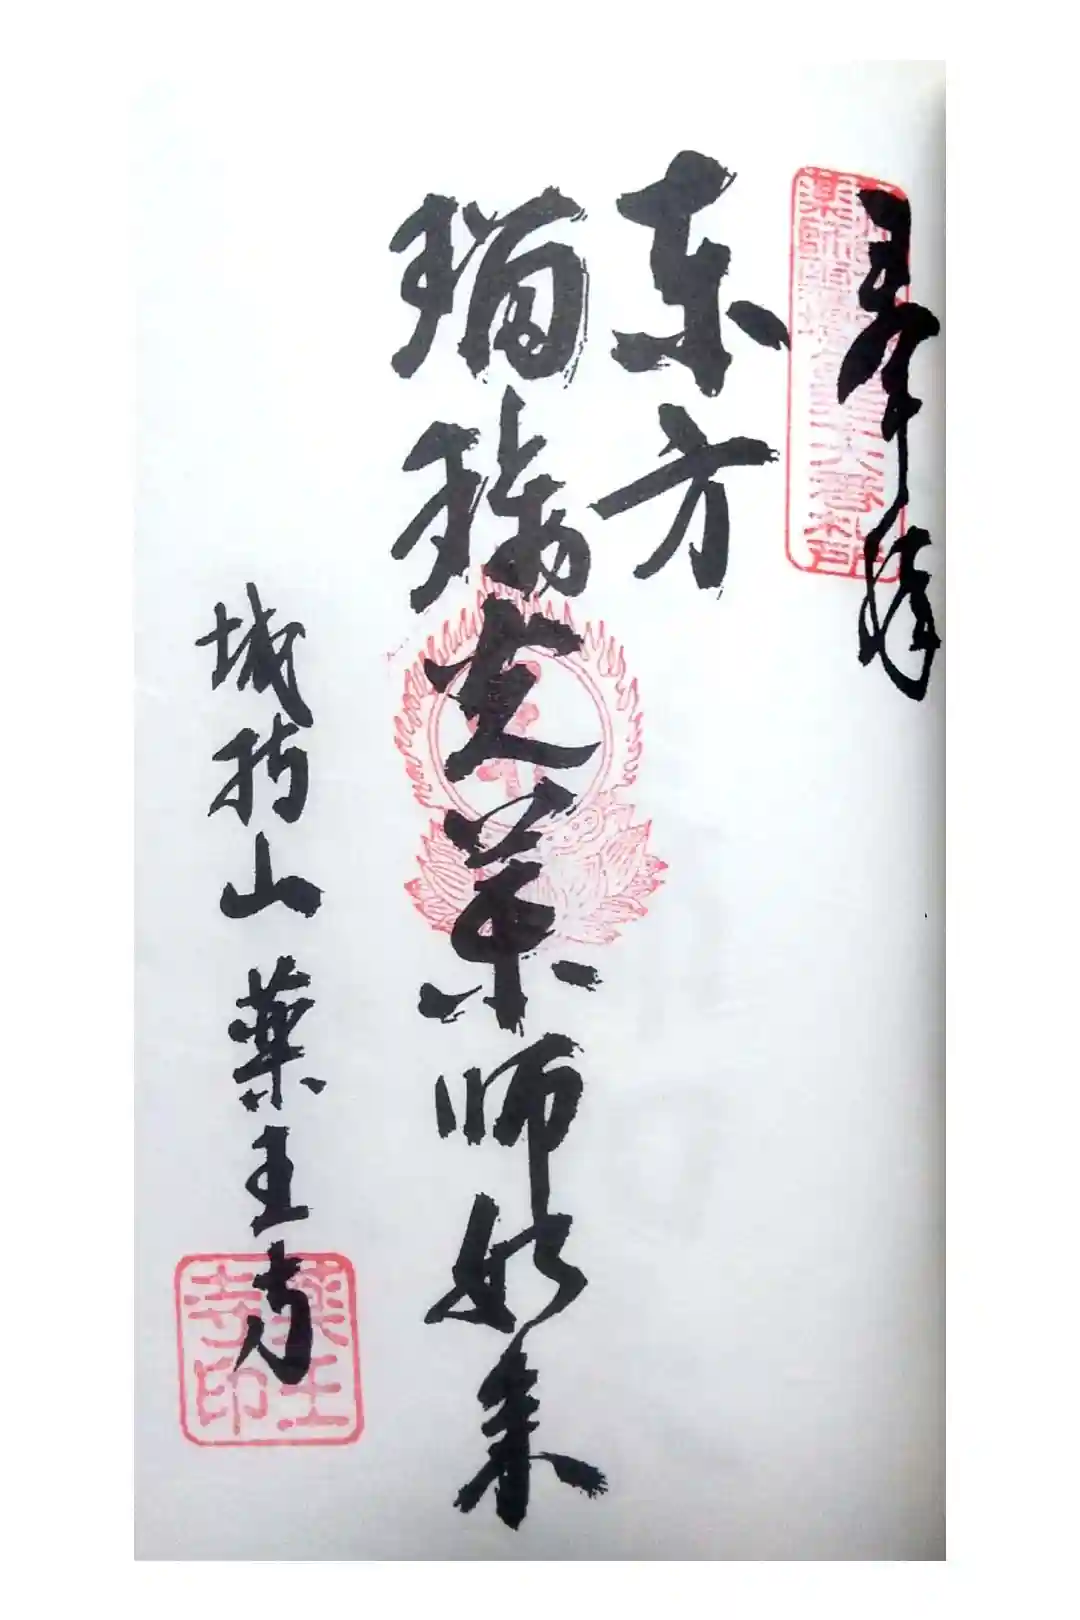 奉拝
东方
瑠璃光薬师如来
城持山 薬王寺
薬王
寺印